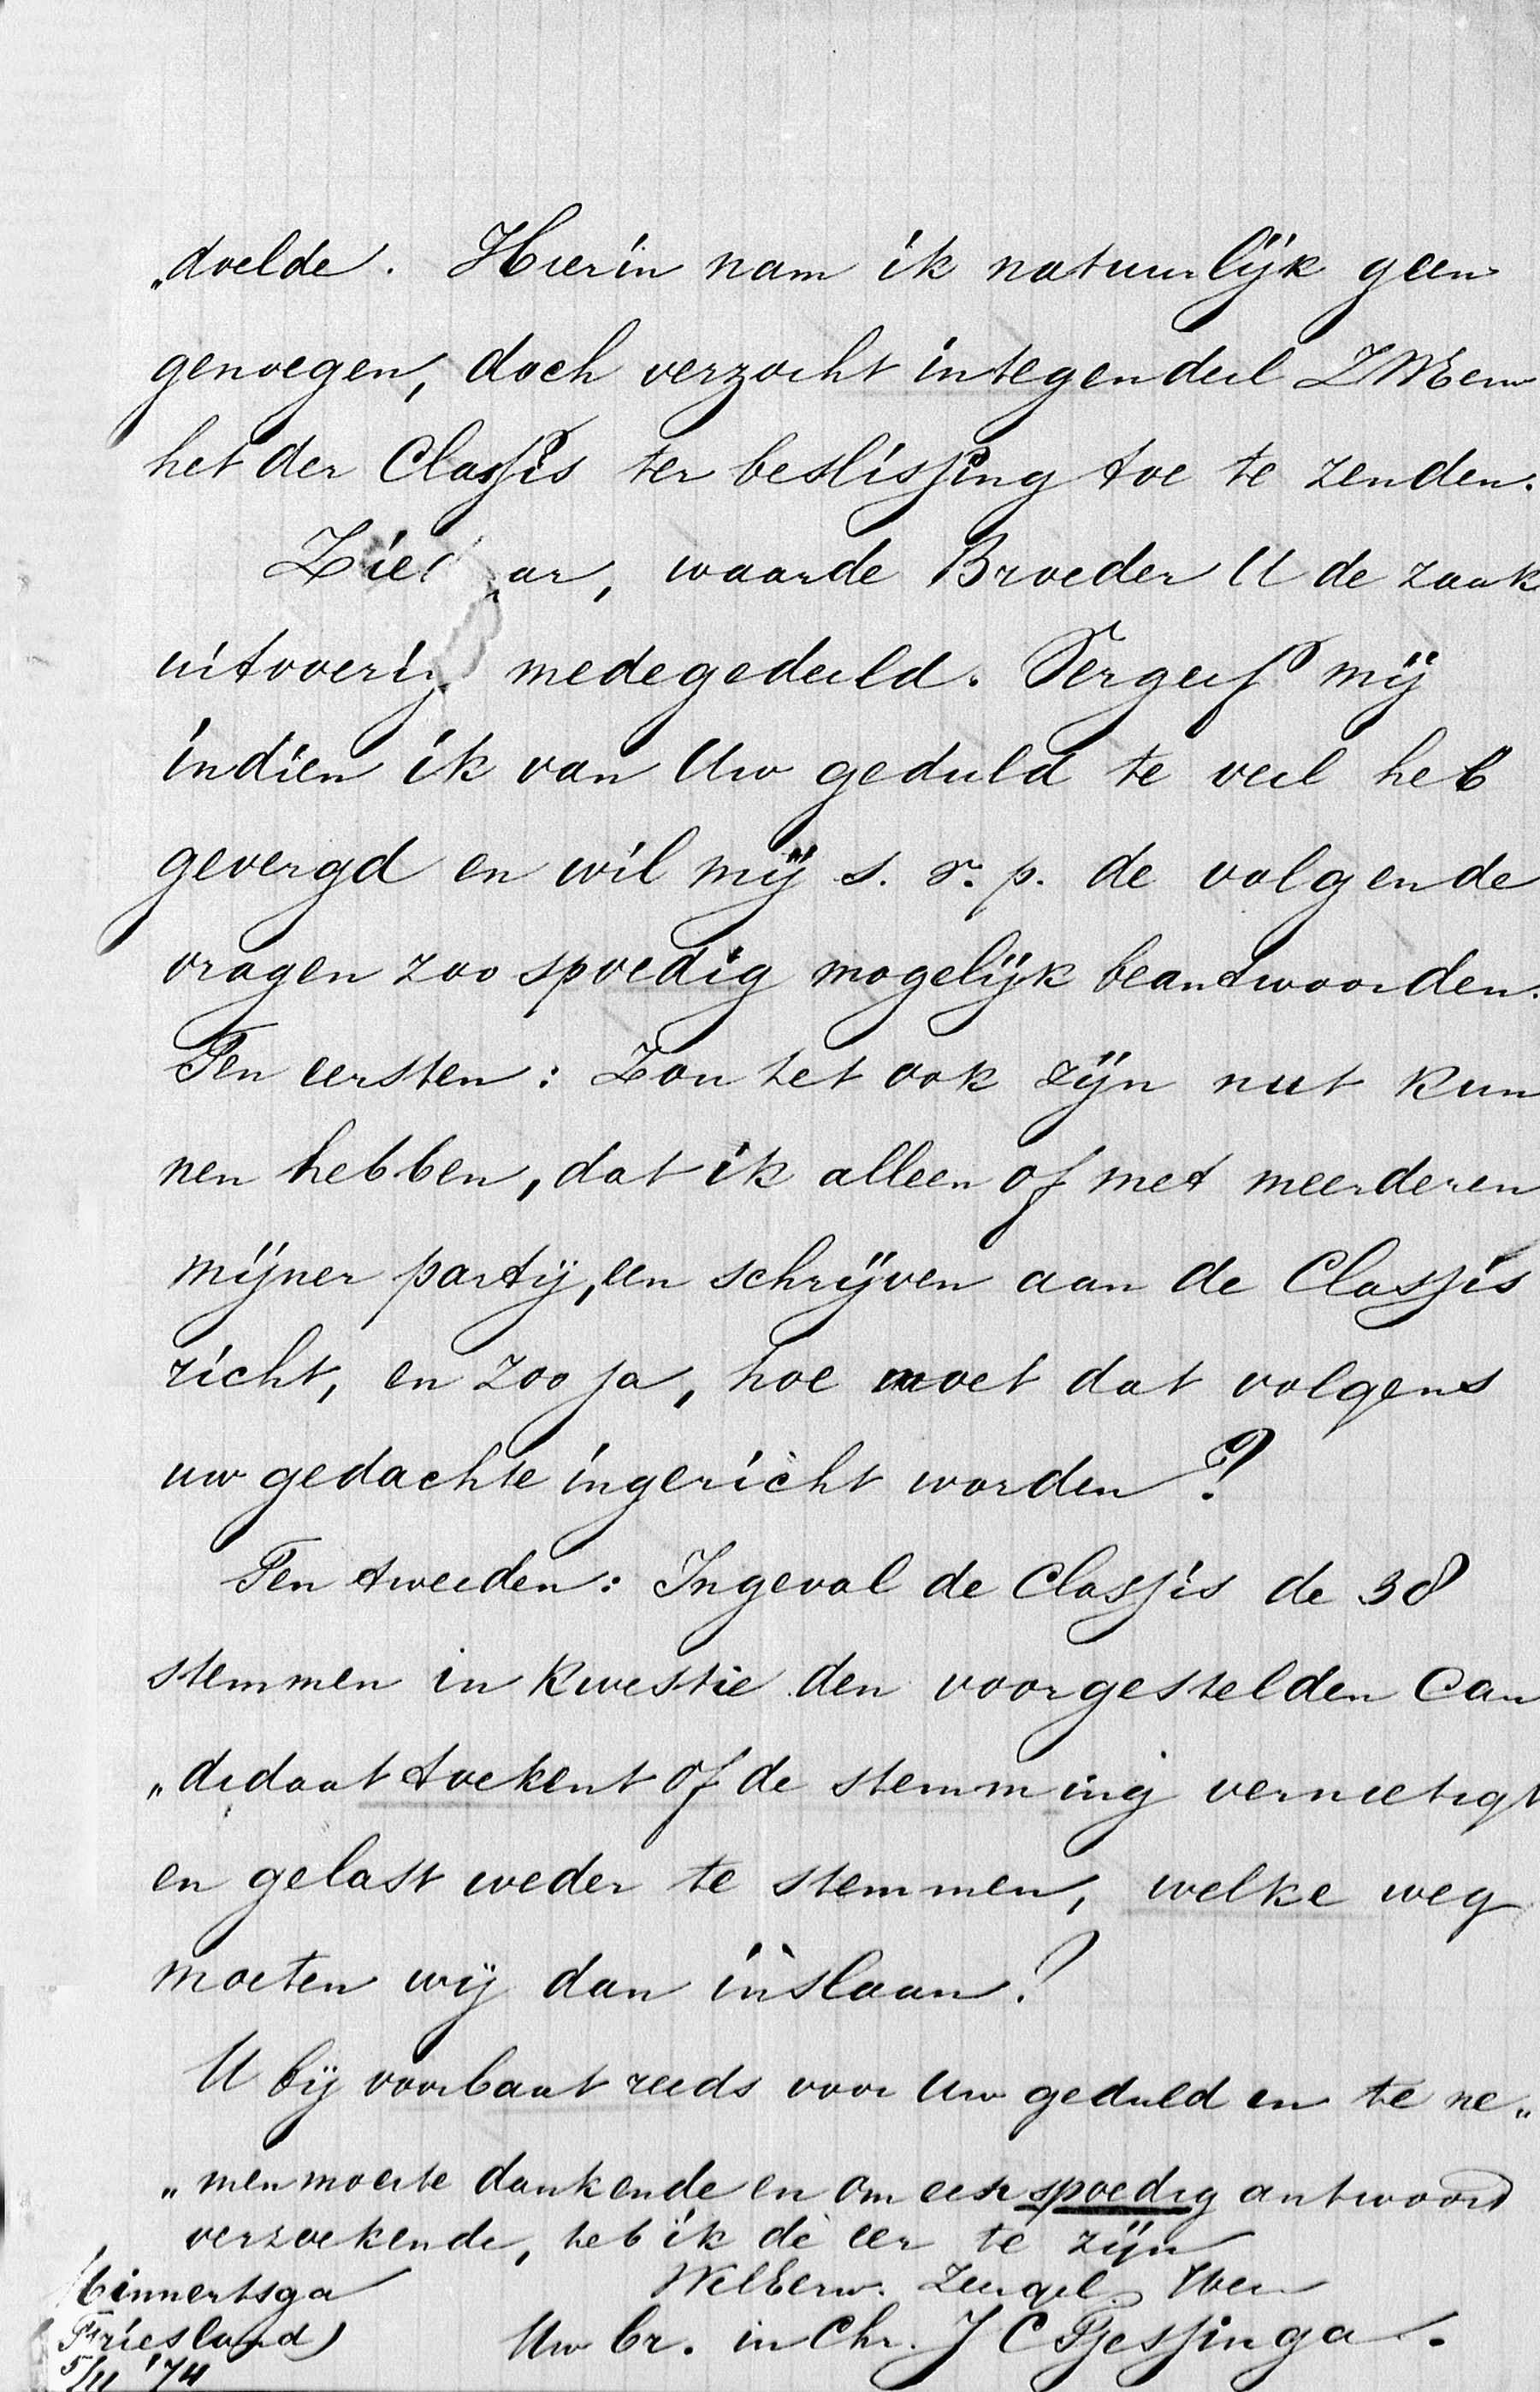 „doelde. Hierin nam ik natuurlijk geen
genoegen, doch verzocht integendeel ZWEerw
het der Classis ter beslissing toe te zenden.
Zie ar, waarde Broeder U de zaak
uitvoerig medegedeeld. Vergeef mij
indien ik van Uw geduld te veel heb
gevergd en wil mij s. v. p. de volgende
vragen zoo spoedig mogelijk beantwoorden.
Ten eersten: Zou het ook zijn nut kun
nen hebben, dat ik alleen of met meerderen
mijner partij, een schrijven aan de Classis
richt, en zoo ja, hoe moet dat volgens
uw gedachte ingericht worden?
Ten tweeden: Ingeval de Classis de 38
stemmen in kwestie den voorgestelden Can
„didaat toekent of de stemming vernietigt
en gelast weder te stemmen, welke weg
moeten wij dan inslaan?
U bij voorbaat reeds voor Uw geduld en te ne„
„men moeite dankende en om een spoedig antwoord
verzoekende, heb ik de eer te zijn
WelEerw. Zeergel. Heer
Uw br. in Chr. J C Tjessinga.
Minnertsga
(Friesland)
5/11 '74